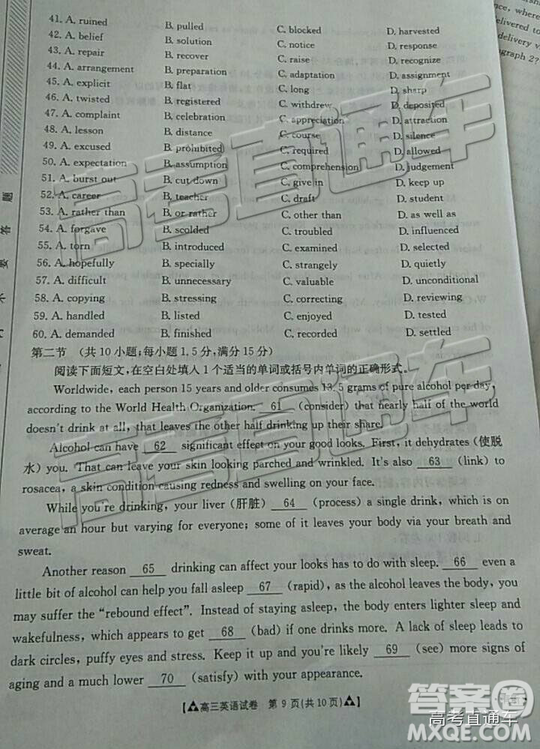 41. A. ruined B. pulled C. blocked D. harvested
42. A. belief B. solution C. notice D. response
43. A. repair B. recover C. raise D. recognize
44. A. arrangement B. preparation C. adaptation D. assignment
45. A. explicit B. flat C. long D. sharp
46. A. twisted B. registered C. withdrew D. deposited
47. A. complaint B. celebration C. appreciation D. attraction
48. A. lesson B. distance C. course D. silence
49. A. excused B. prohibited C. required D. allowed
50. A. expectation B. assumption C. comprehension D. judgement
51. A. burst out B. cut down C. give in D. keep up
52. A. career B. teacher C. draft D. student
53. A. rather than B. or rather C. other than D. as well as
54. A. forgave B. scolded C. troubled D. influenced
55. A. torn B. introduced C. examined D. selected
56. A. hopefully B. specially C. strangely D. quietly
57. A. difficult B. unnecessary C. valuable D. unconditional
58. A. copying B. stressing C. correcting D. reviewing
59. A. handled B. listed C. enjoyed D. tested
60. A. demanded B. finished C. recorded D. settled
第二节 (共10小题;每小题1.5分,满分15分)
阅读下面短文,在空白处填入1个适当的单词或括号内单词的正确形式.
Worldwide, each person 15 years and older consumes 13.5 grams of pure alcohol per day,
according to the World Health Organization. 61 (consider) that nearly half of the world
doesn't drink at all, that leaves the other half drinking up their share.
Alcohol can have 62 significant effect on your good looks. First, it dehydrates (使脱
水) you. That can leave your skin looking parched and wrinkled. It's also 63 (link) to
rosacea, a skin condition causing redness and swelling on your face.
While you're drinking, your liver (肝脏) 64 (process) a single drink, which is on
average an hour but varying for everyone; some of it leaves your body via your breath and
sweat.
Another reason 65 drinking can affect your looks has to do with sleep. 66 even a
little bit of alcohol can help you fall asleep 67 (rapid), as the alcohol leaves the body, you
may suffer the "rebound effect". Instead of staying asleep, the body enters lighter sleep and
wakefulness, which appears to get 68 (bad) if one drinks more. A lack of sleep leads to
dark circles, puffy eyes and stress. Keep it up and you're likely 69 (see) more signs of
aging and a much lower 70 (satisfy) with your appearance.
高三英语试卷 第9页(共10页)
delivered to
delivery v
ragraph 2?
题
答
要
高考直通车
高考直通车
高考直通车
答案圈
MXQE.COM